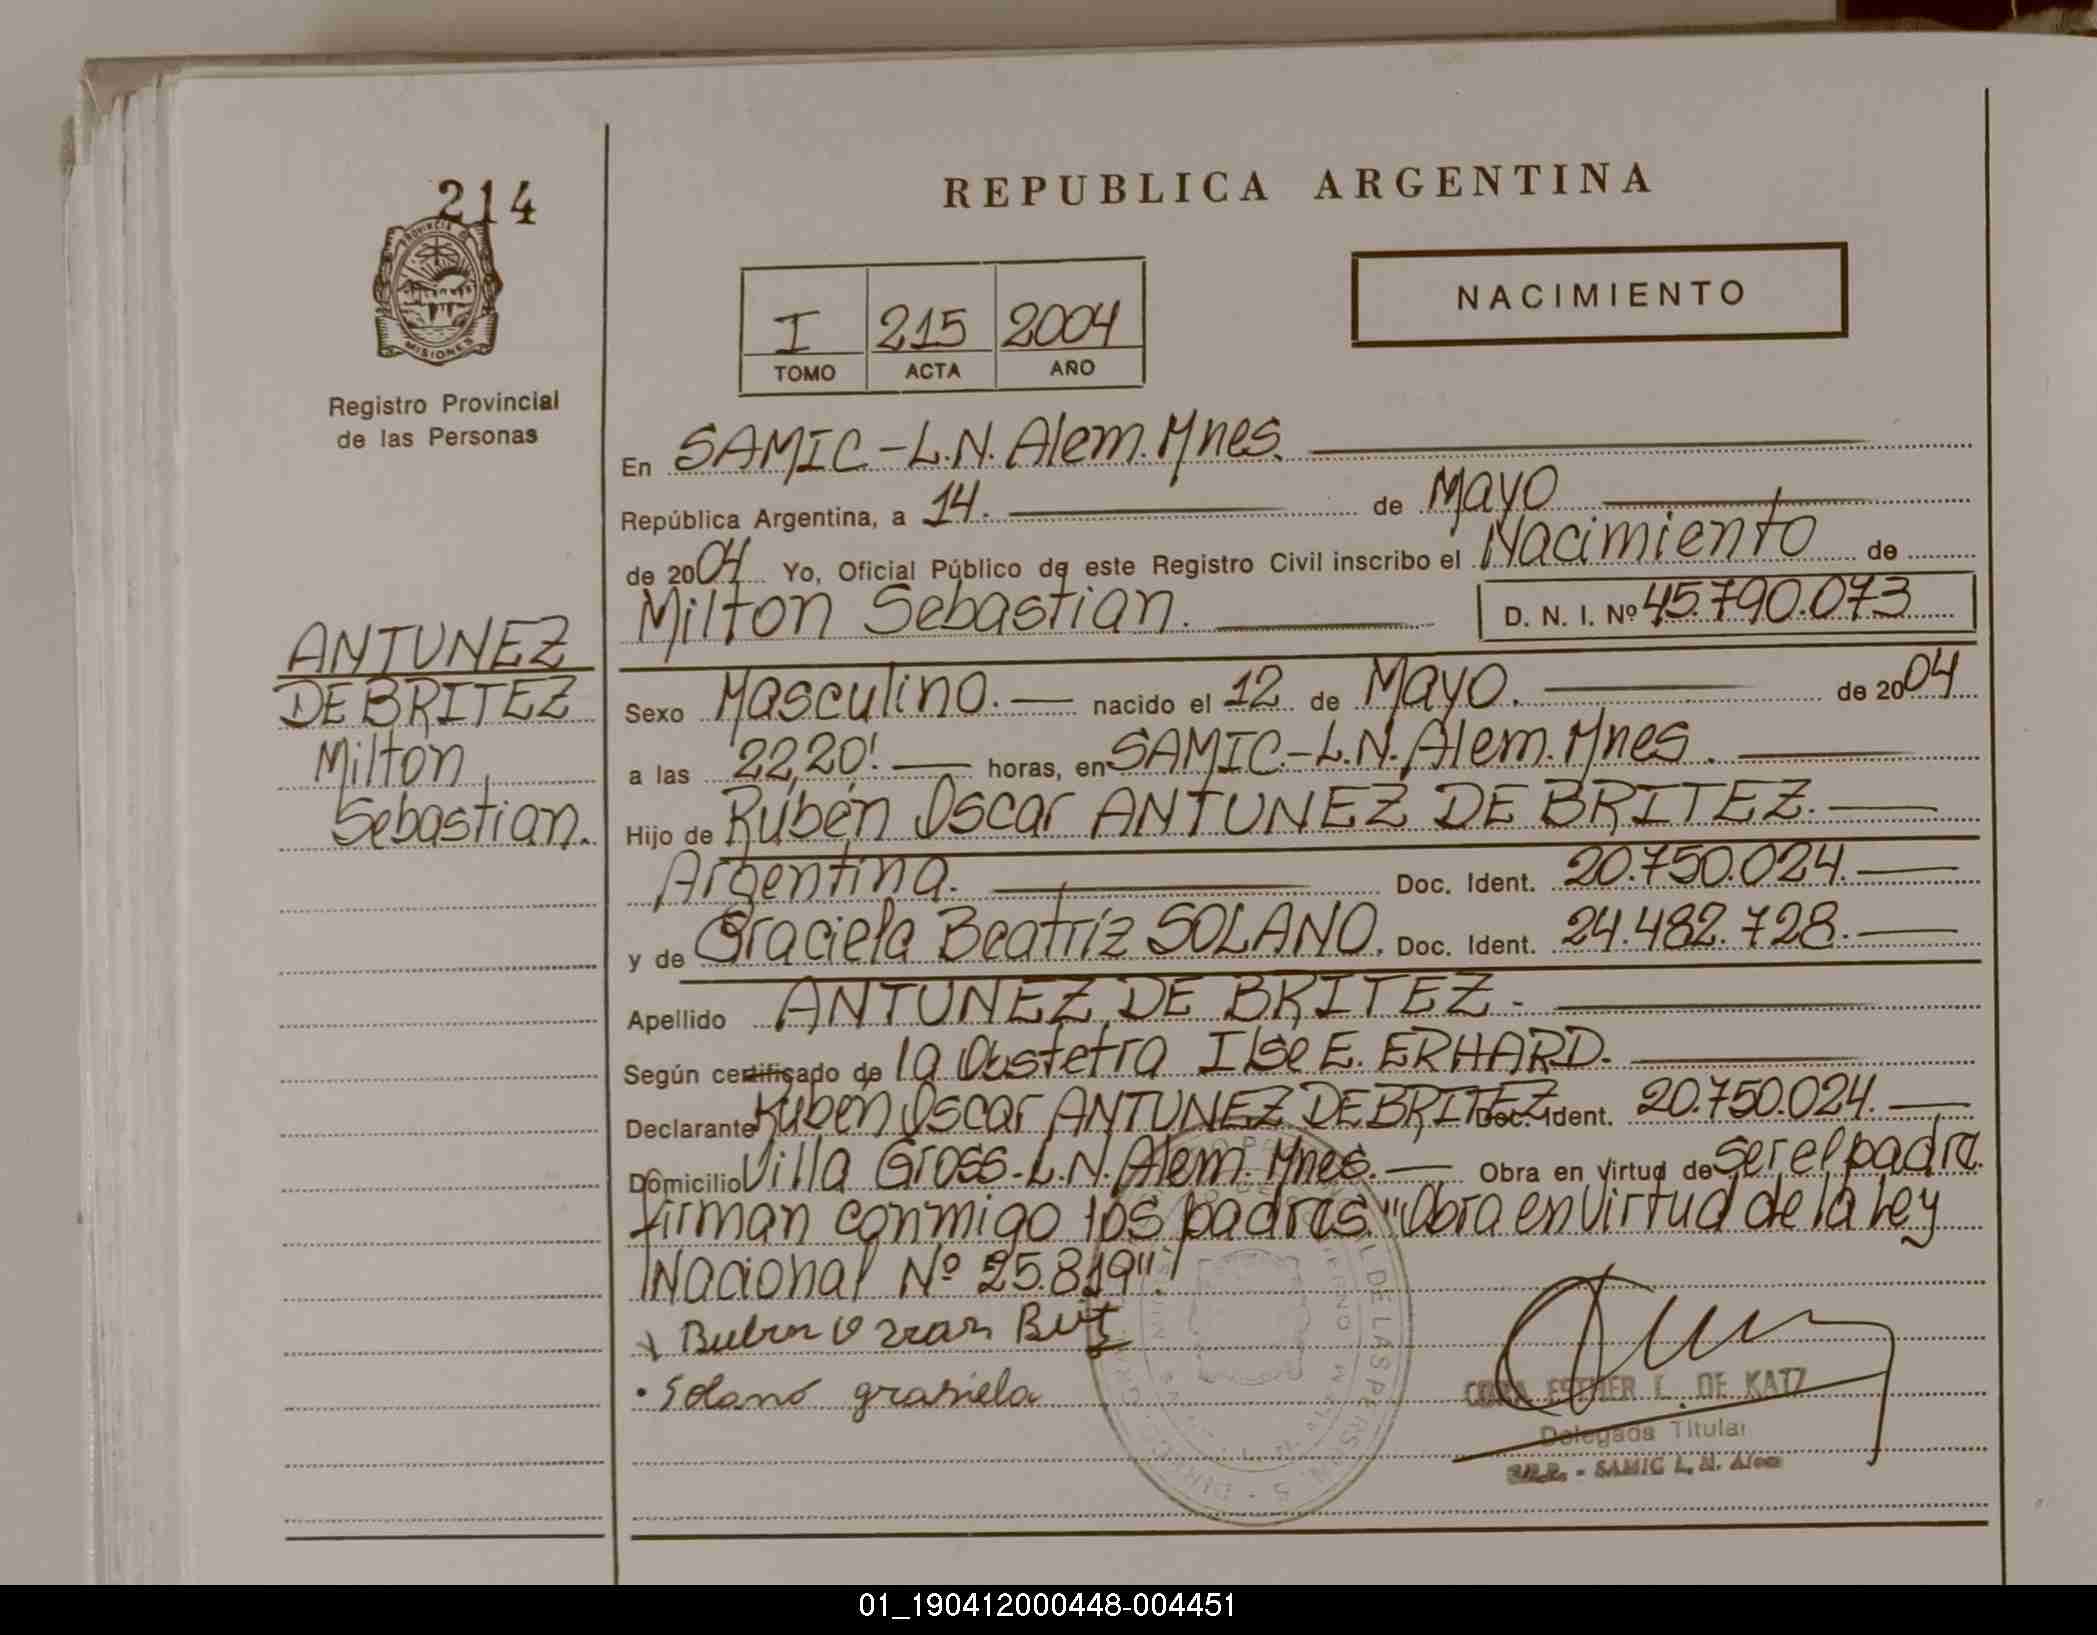 214
PROVINCIA DE
MISIONES
Registro Provincial
de las Personas
ANTUNEZ
DE BRITEZ
Milton
Sebastian.
REPUBLICA ARGENTINA
NACIMIENTO
I 215 2004
TOMO ACTA AÑO
En SAMIC-L.N. Alem. Mnes.
República Argentina, a 14. de Mayo
de 2004 Yo, Oficial Público de este Registro Civil inscribo el Nacimiento de
Milton Sebastian. D. N. I. Nº 45.790.073
Sexo Masculino. nacido el 12 de Mayo. de 2004
a las 22,20! horas, en SAMIC.-L.N. Alem. Mnes.
Hijo de Rubén Oscar ANTUNEZ DE BRITEZ.
Argentina. Doc. Ident. 20.750.024.
y de Graciela Beatríz SOLANO. Doc. Ident. 24.482.728.
Apellido ANTUNEZ DE BRITEZ.
Según certificado de la Obstetra Ilse E. ERHARD.
Declarante Rubén Oscar ANTUNEZ DE BRITEZ Doc. Ident. 20.750.024.
Domicilio Villa Gross-L.N. Alem. Mnes. Obra en virtud de ser el padre.
firman conmigo los padres "Obra en Virtud de la Ley
Nacional Nº 25.819".
Solano grasiela
CORA ESTHER L. DE KATZ
Delegada Titular
SAMIC L. N. Alem
01_190412000448-004451